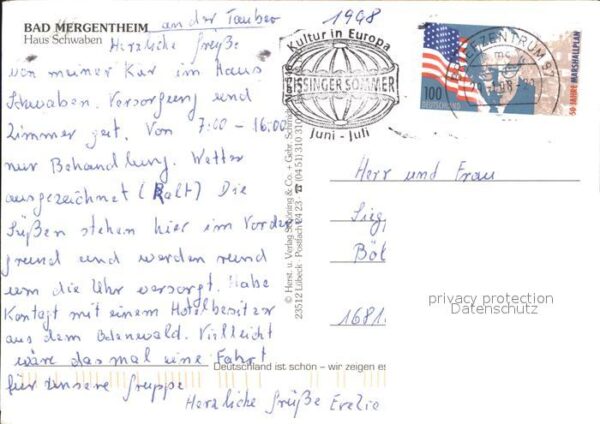 BAD MERGENTHEIM an der Tauber 1998
Haus Schwaben
Herzliche Grüße
von meiner Kur im Haus
Schwaben. Versorgung und
Zimmer gut. Von 7:00 - 16:00
nur Behandlung. Wetter
ausgezeichnet (Kalt) Die
Süßen stehen hier im Vorder
grund und werden rund
um die Uhr versorgt. Habe
Kontakt mit einem Hotelbesitzer
aus dem Odenwald. Vielleicht
wäre das mal eine Fahrt
für unsere Gruppe
Herzliche Grüße
© Herst. u. Verlag Schöning & Co. + Gebr. Schmidt
23512 Lübeck · Postfach 24 23 · ☎ (04 51) 310 31
Deutschland ist schön – wir zeigen es
Kultur in Europa
KISSINGER SOMMER
Juni - Juli
BRIEFZENTRUM 97
100
DEUTSCHLAND
50 JAHRE MARSHALLPLAN
Herr und Frau
Sieg
Böb
1681
privacy protection
Datenschutz